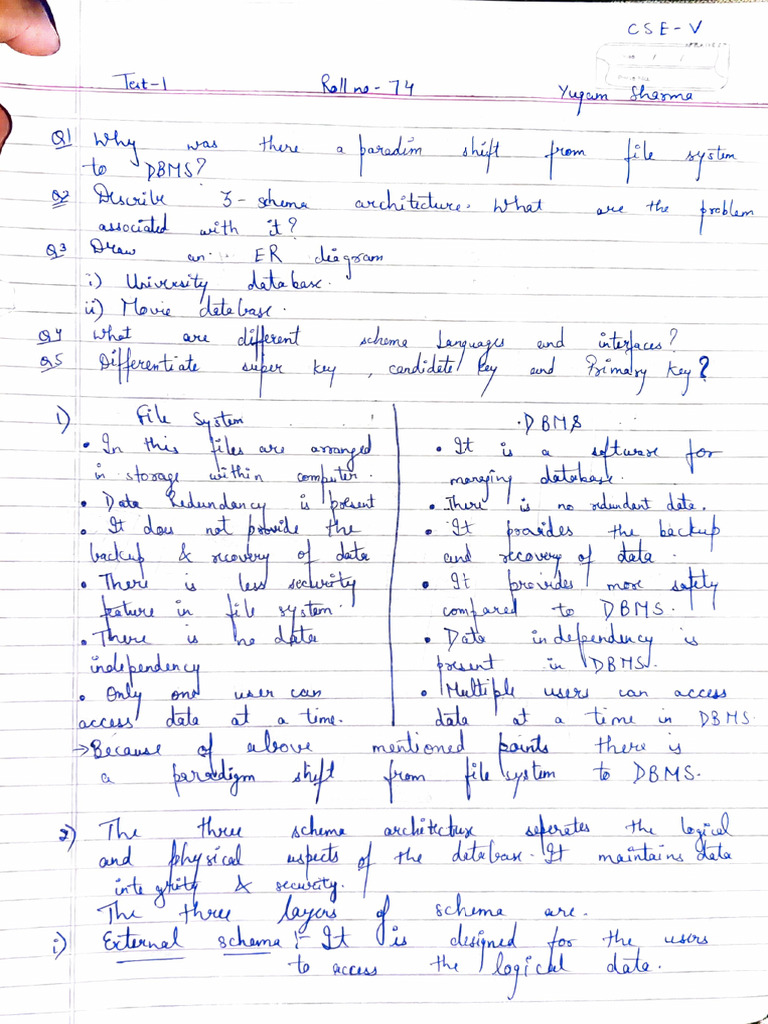 CSE-V
Test-1 Roll no-74 Yugam Sharma
Q1 Why was there a paradim shift from file system
to DBMS?
Q2 Describe 3-schema architecture. What are the problem
associated with it?
Q3 Draw an ER diagram
i) University database.
ii) Movie database.
Q4 What are different schema languages and interfaces?
Q5 Differentiate super key, candidate key and Primary key?
1) File System
• In this files are arranged
in storage within computer.
• Data Redundancy is present
• It does not provide the
backup & recovery of data
• There is less security
feature in file system.
• There is no data
independency
• Only one user can
access data at a time.
DBMS
• It is a software for
managing database.
• There is no redundant data.
• It provides the backup
and recovery of data.
• It provides more safety
compared to DBMS.
• Data independency is
present in DBMS.
• Multiple users can access
data at a time in DBMS.
→ Because of above mentioned points there is
a paradigm shift from file system to DBMS.
2) The three schema architecture seperates the logical
and physical aspects of the database. It maintains data
integrity & security.
The three layers of schema are.
i) External schema :- It is designed for the users
to access the logical data.